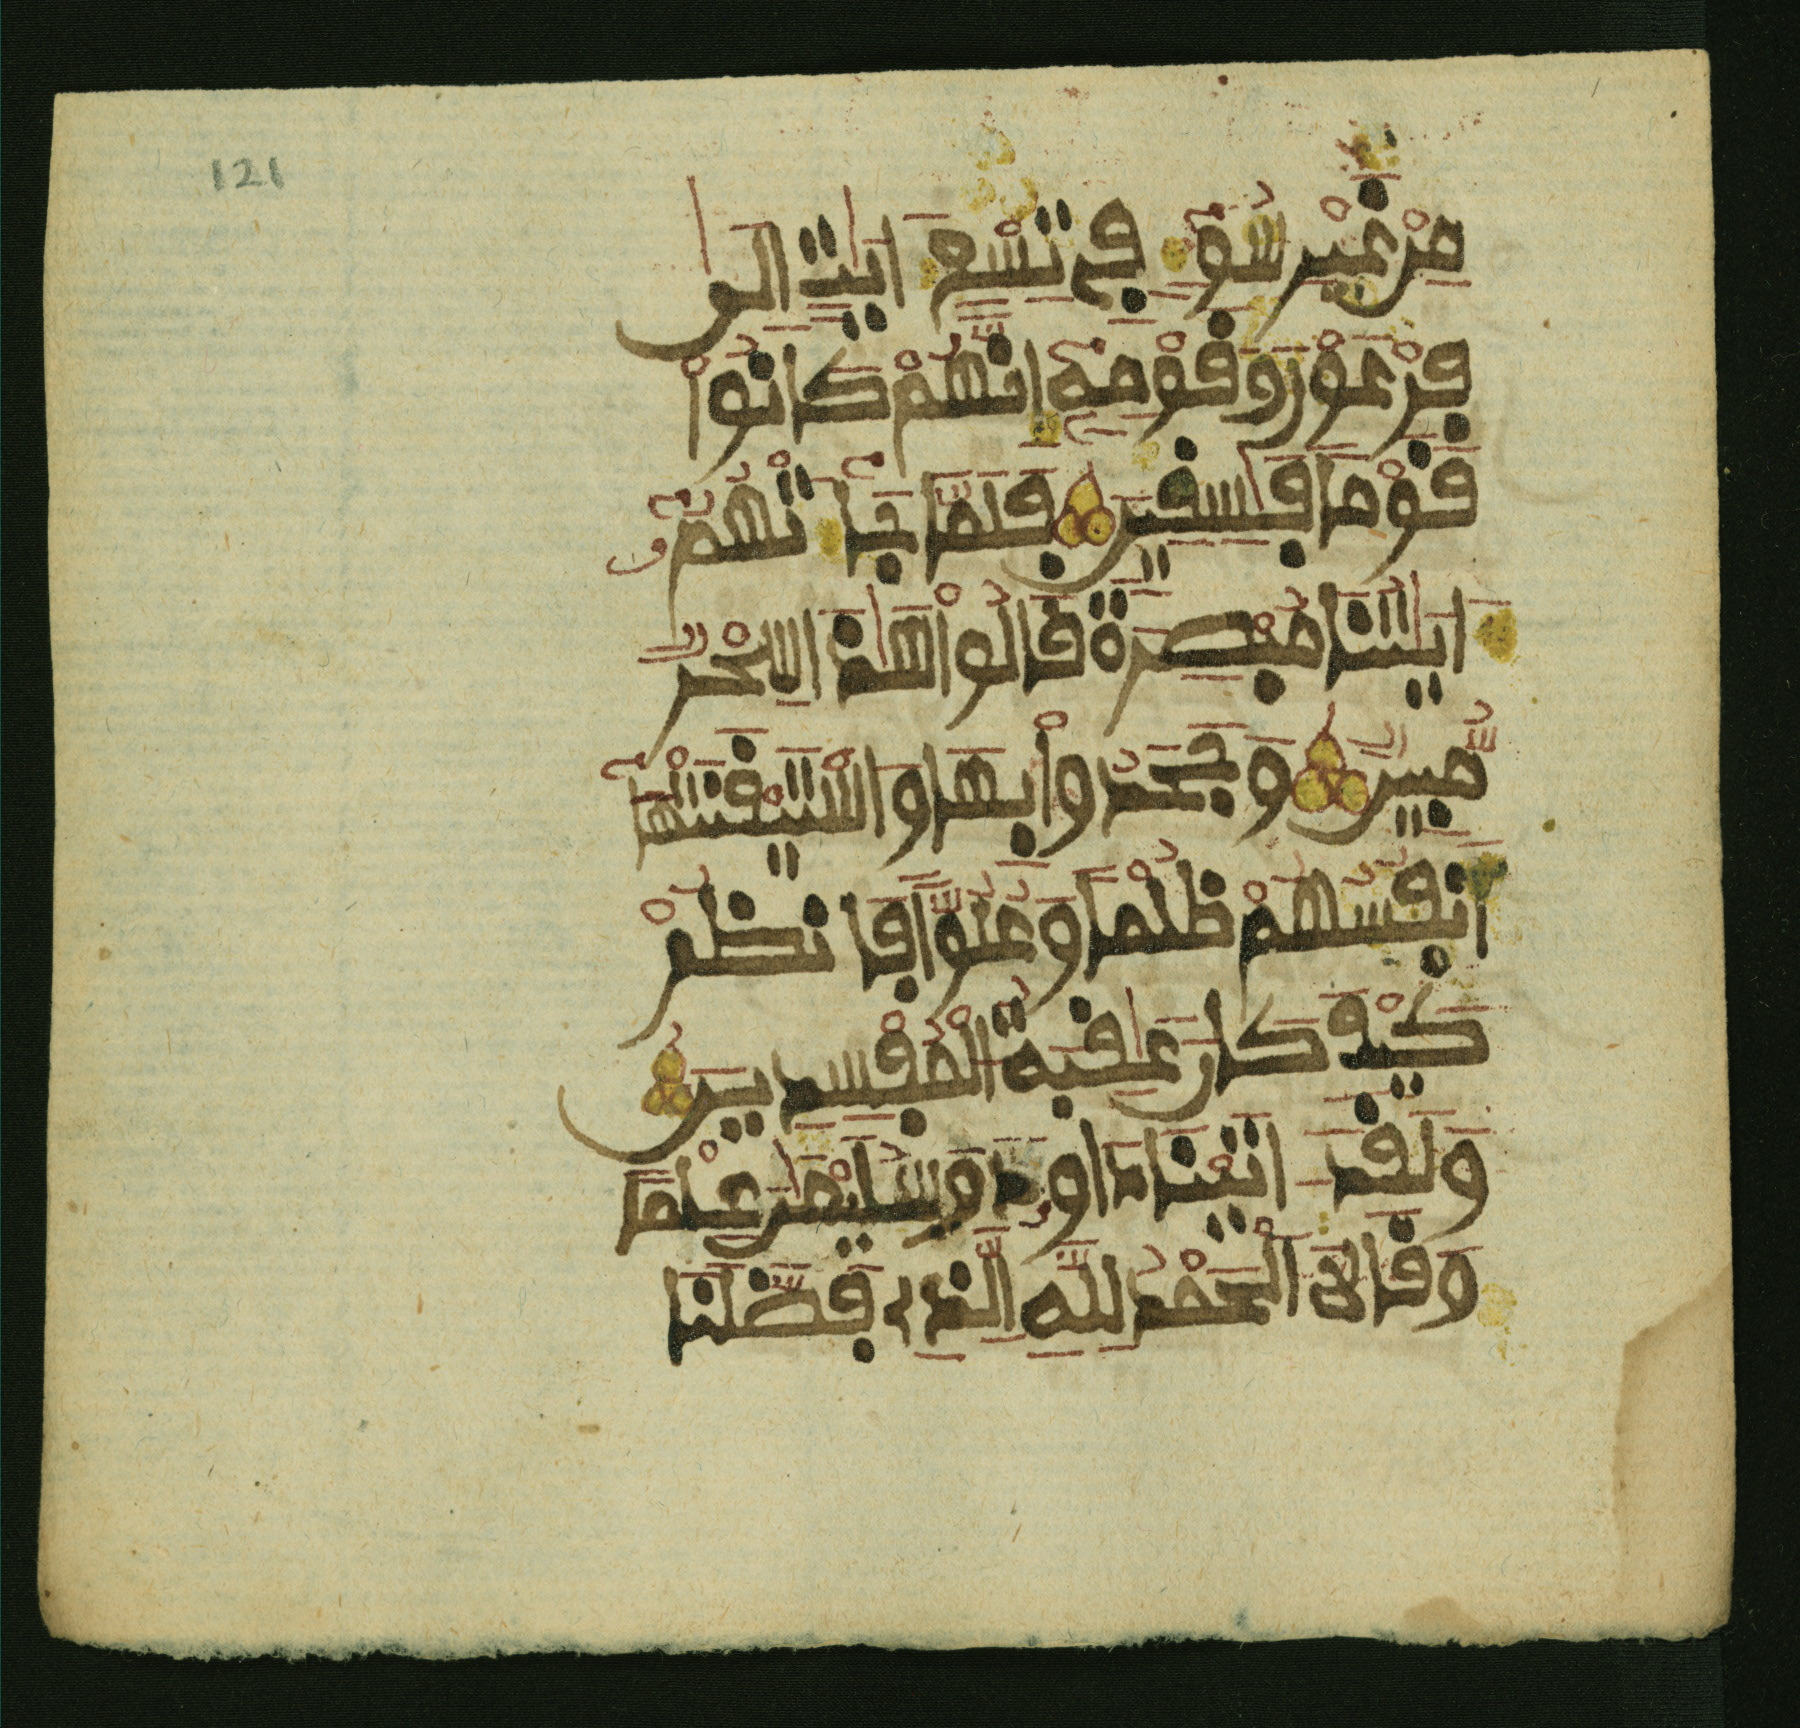 121
مِنْ غَيْرِ سُوٓءٍ فِي تِسْعِ ءَايَٰتٍ إِلَىٰ
فِرْعَوْنَ وَقَوْمِهِۦٓ إِنَّهُمْ كَانُواْ
قَوْمًا فَٰسِقِينَ فَلَمَّا جَآءَتْهُمُۥٓ
ءَايَٰتُنَا مُبْصِرَةً قَالُواْ هَٰذَا سِحْرٌ
مُّبِينٌ وَجَحَدُواْ بِهَا وَاسْتَيْقَنَتْهَآ
أَنفُسُهُمْ ظُلْمًا وَعُلُوًّا فَانظُرْ
كَيْفَ كَانَ عَٰقِبَةُ الْمُفْسِدِينَ
وَلَقَدَ ـاتَيْنَا دَاوُۥدَ وَسُلَيْمَٰنَ عِلْمًا
وَقَالَا الْحَمْدُ لِلَّهِ الَّذِي فَضَّلَنَا